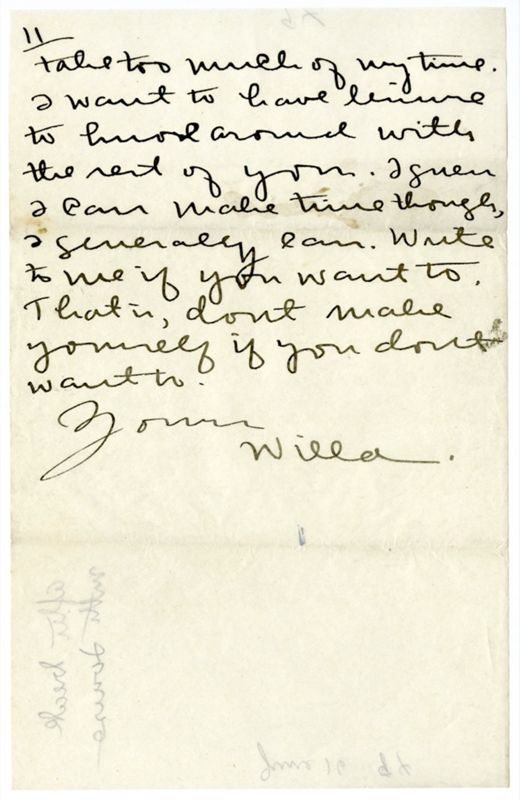 11
take too much of my time.
I want to have leisure
to knock around with
the rest of you. I guess
I can make time though,
I generally can. Write
to me if you want to.
That is, dont make
yourself if you dont
want to.
Yours
Willa.